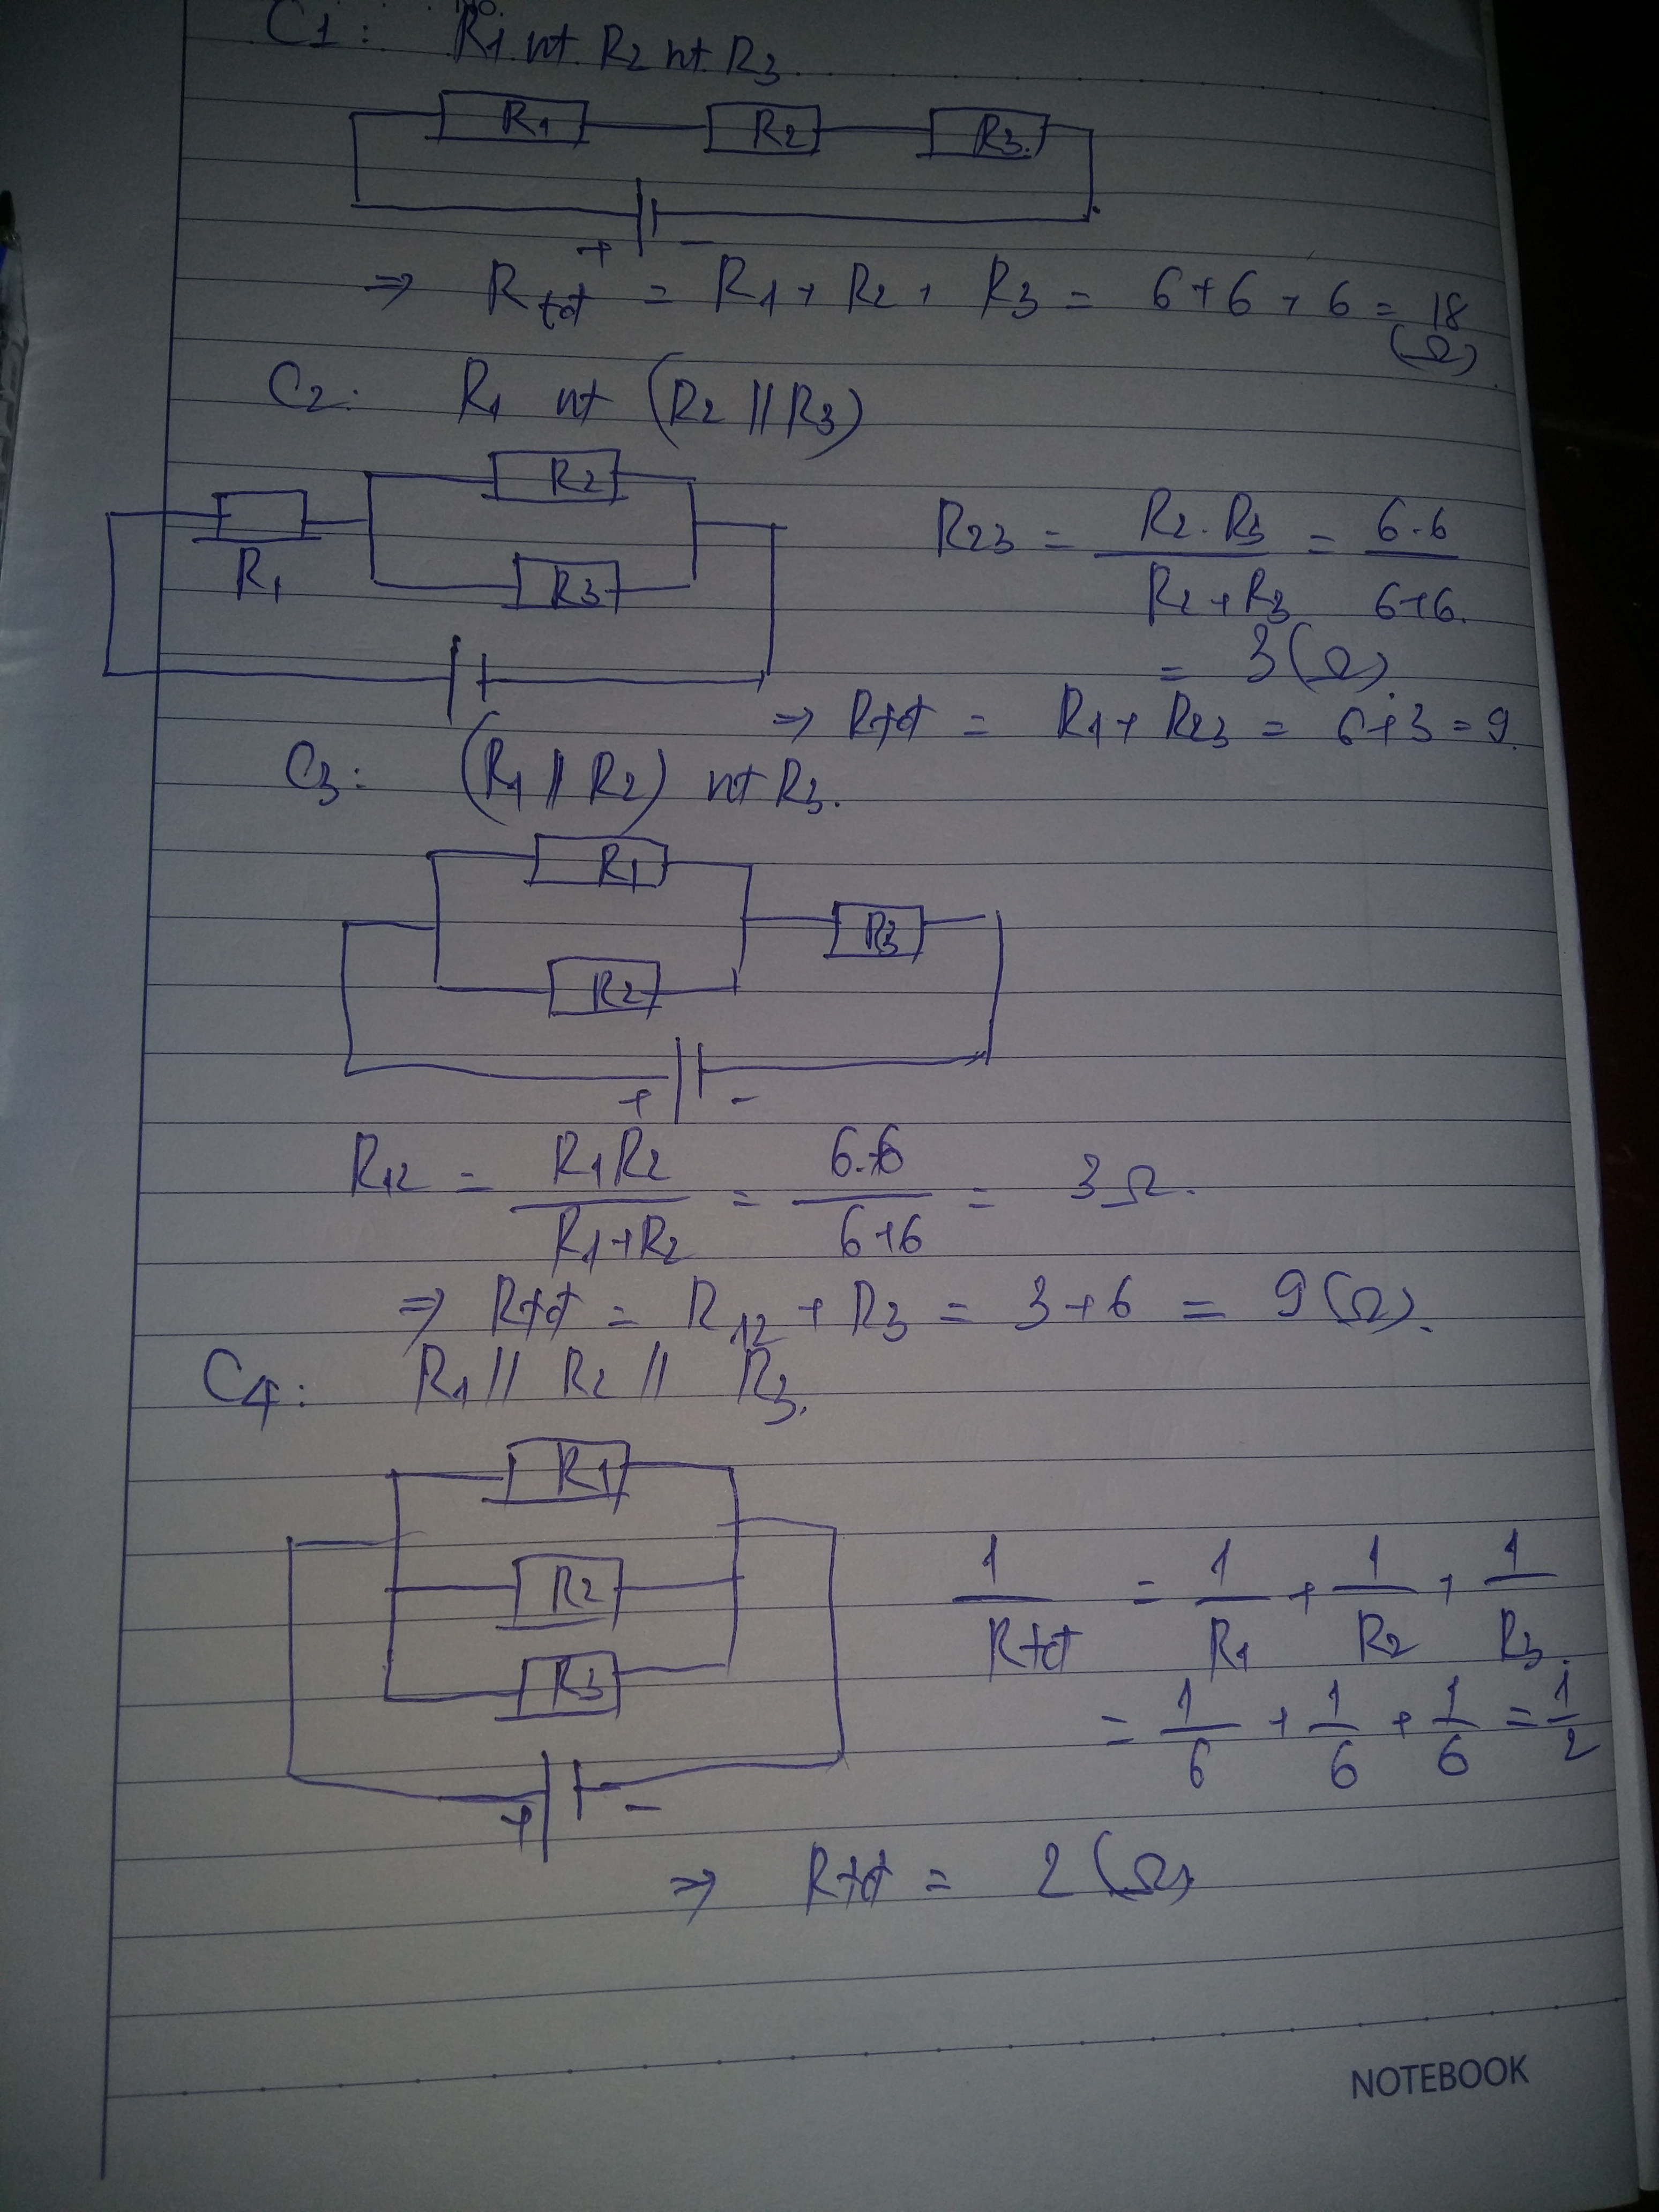 No.
C1: R1 nt R2 nt R3
R1 R2 R3.
+ -
=> Rtđ = R1 + R2 + R3 = 6 + 6 + 6 = 18
(Ω)
C2: R1 nt (R2 // R3)
R2
R1
R3
R23 = R2 . R3 / R2 + R3 = 6.6 / 6+6.
= 3 (Ω)
=> Rtđ = R1 + R23 = 6 + 3 = 9.
C3: (R1 // R2) nt R3.
R1
R3
R2
+ -
R12 = R1R2 / R1+R2 = 6.6 / 6+6 = 3 Ω.
=> Rtđ = R12 + R3 = 3 + 6 = 9 (Ω).
C4: R1 // R2 // R3.
R1
R2
R3
+ -
1 / Rtđ = 1 / R1 + 1 / R2 + 1 / R3.
= 1/6 + 1/6 + 1/6 = 1/2
=> Rtđ = 2 (Ω)
NOTEBOOK